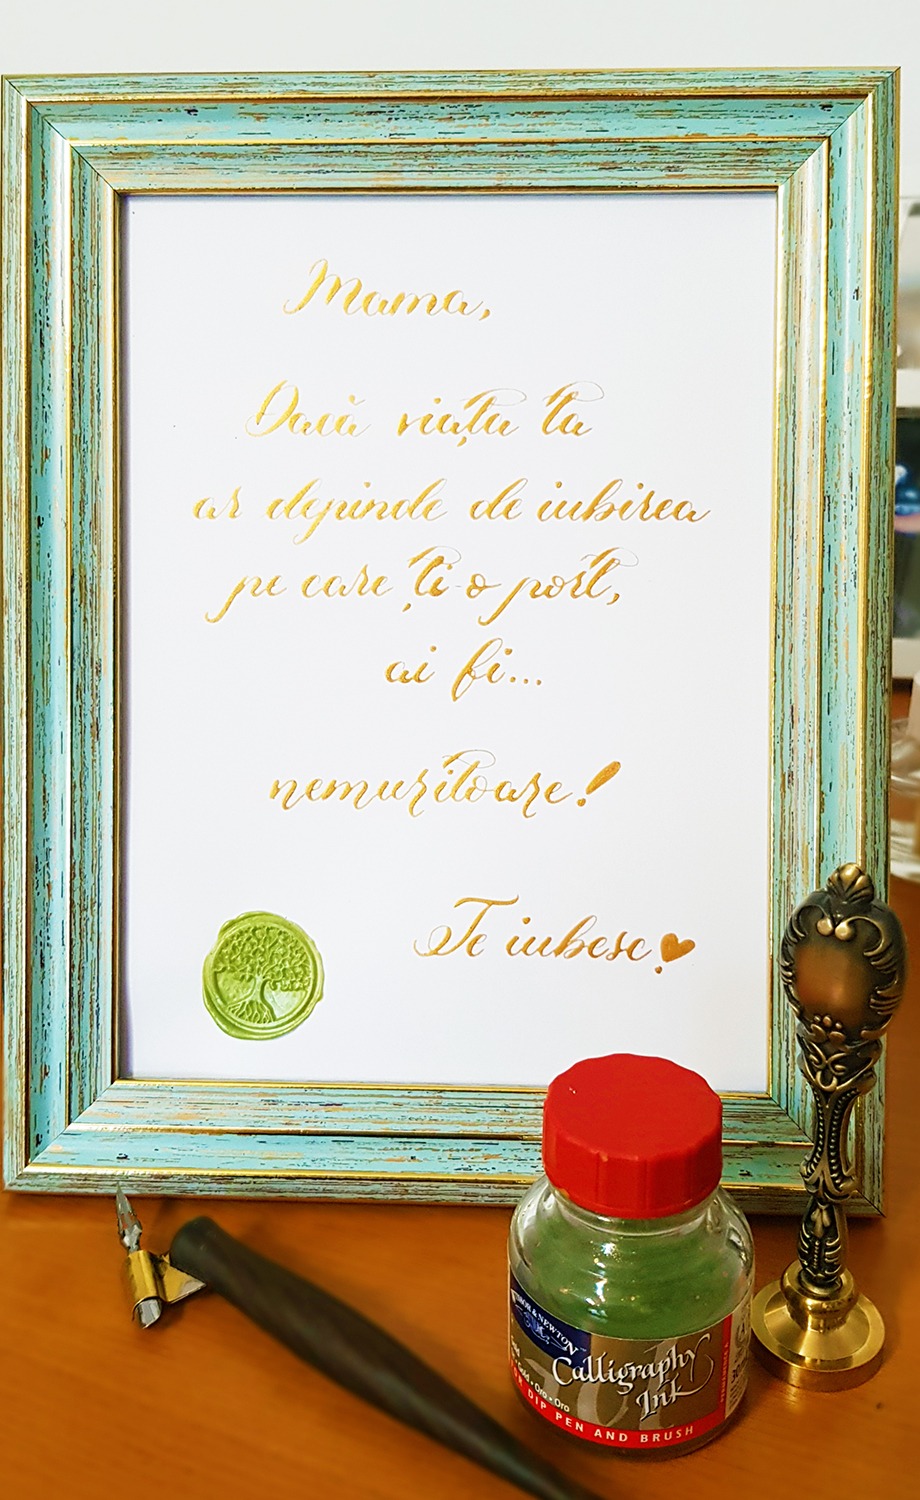 Mama,
Dacă viața ta
ar depinde de iubirea
pe care ți-o port,
ai fi...
nemuritoare!
Te iubesc
& NEWTON
Calligraphy
Ink
Gold • Oro • Oro
DIP PEN AND BRUSH